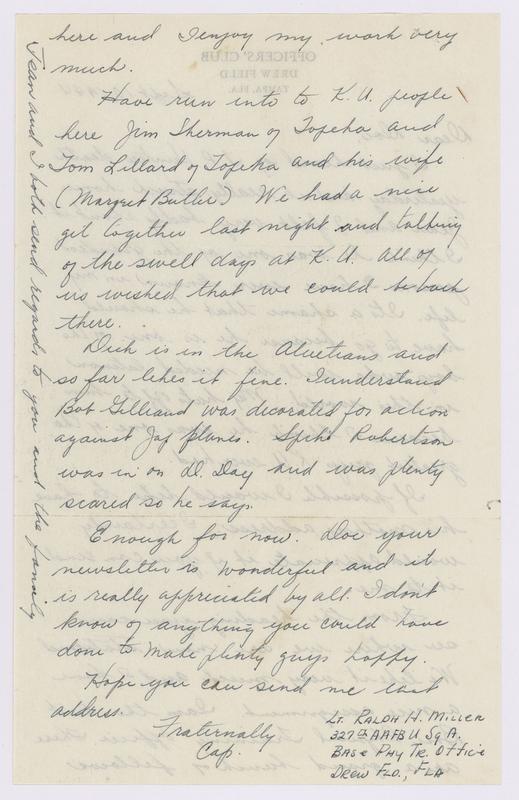 here and I enjoy my work very
much.
Have run into to K.U. people
here Jim Sherman of Topeka and
Tom Lillard of Topeka and his wife
(Margret Butler) We had a nice
get together last night and talking
of the swell days at K.U. all of
us wished that we could be back
there.
Dick is in the Aluetians and
so far likes it fine. I understand
Bob Gilliand was decorated for action
against Jap planes. Spike Robertson
was in on D. Day and was plenty
scared so he says.
Enough for now. Doc your
newsletter is wonderful and it
is really appreciated by all. I don't
know of anything you could have
done to make plenty guys happy.
Hope you can send me that
address.
Fraternally
Cap.
Lt. Ralph H. Miller
327th AAFBU Sq A.
Base Phy Tr. Office
Drew Fld., Fla
Jean and I both send regards to you and the family
OFFICERS' CLUB
DREW FIELD
TAMPA, FLA.